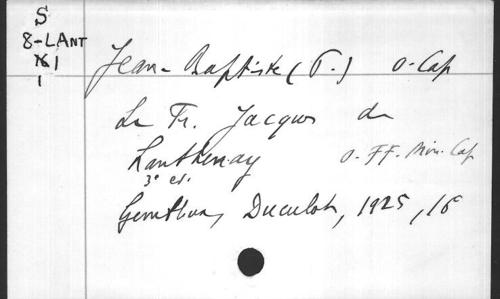 S
8-LANT
1
1
Jean-Baptiste (P.) O. Cap
Le Fr. Jacques de
Lanthenay O. FF. Min. Cap
3e ed.
Gembloux, Duculot, 1925, 16°